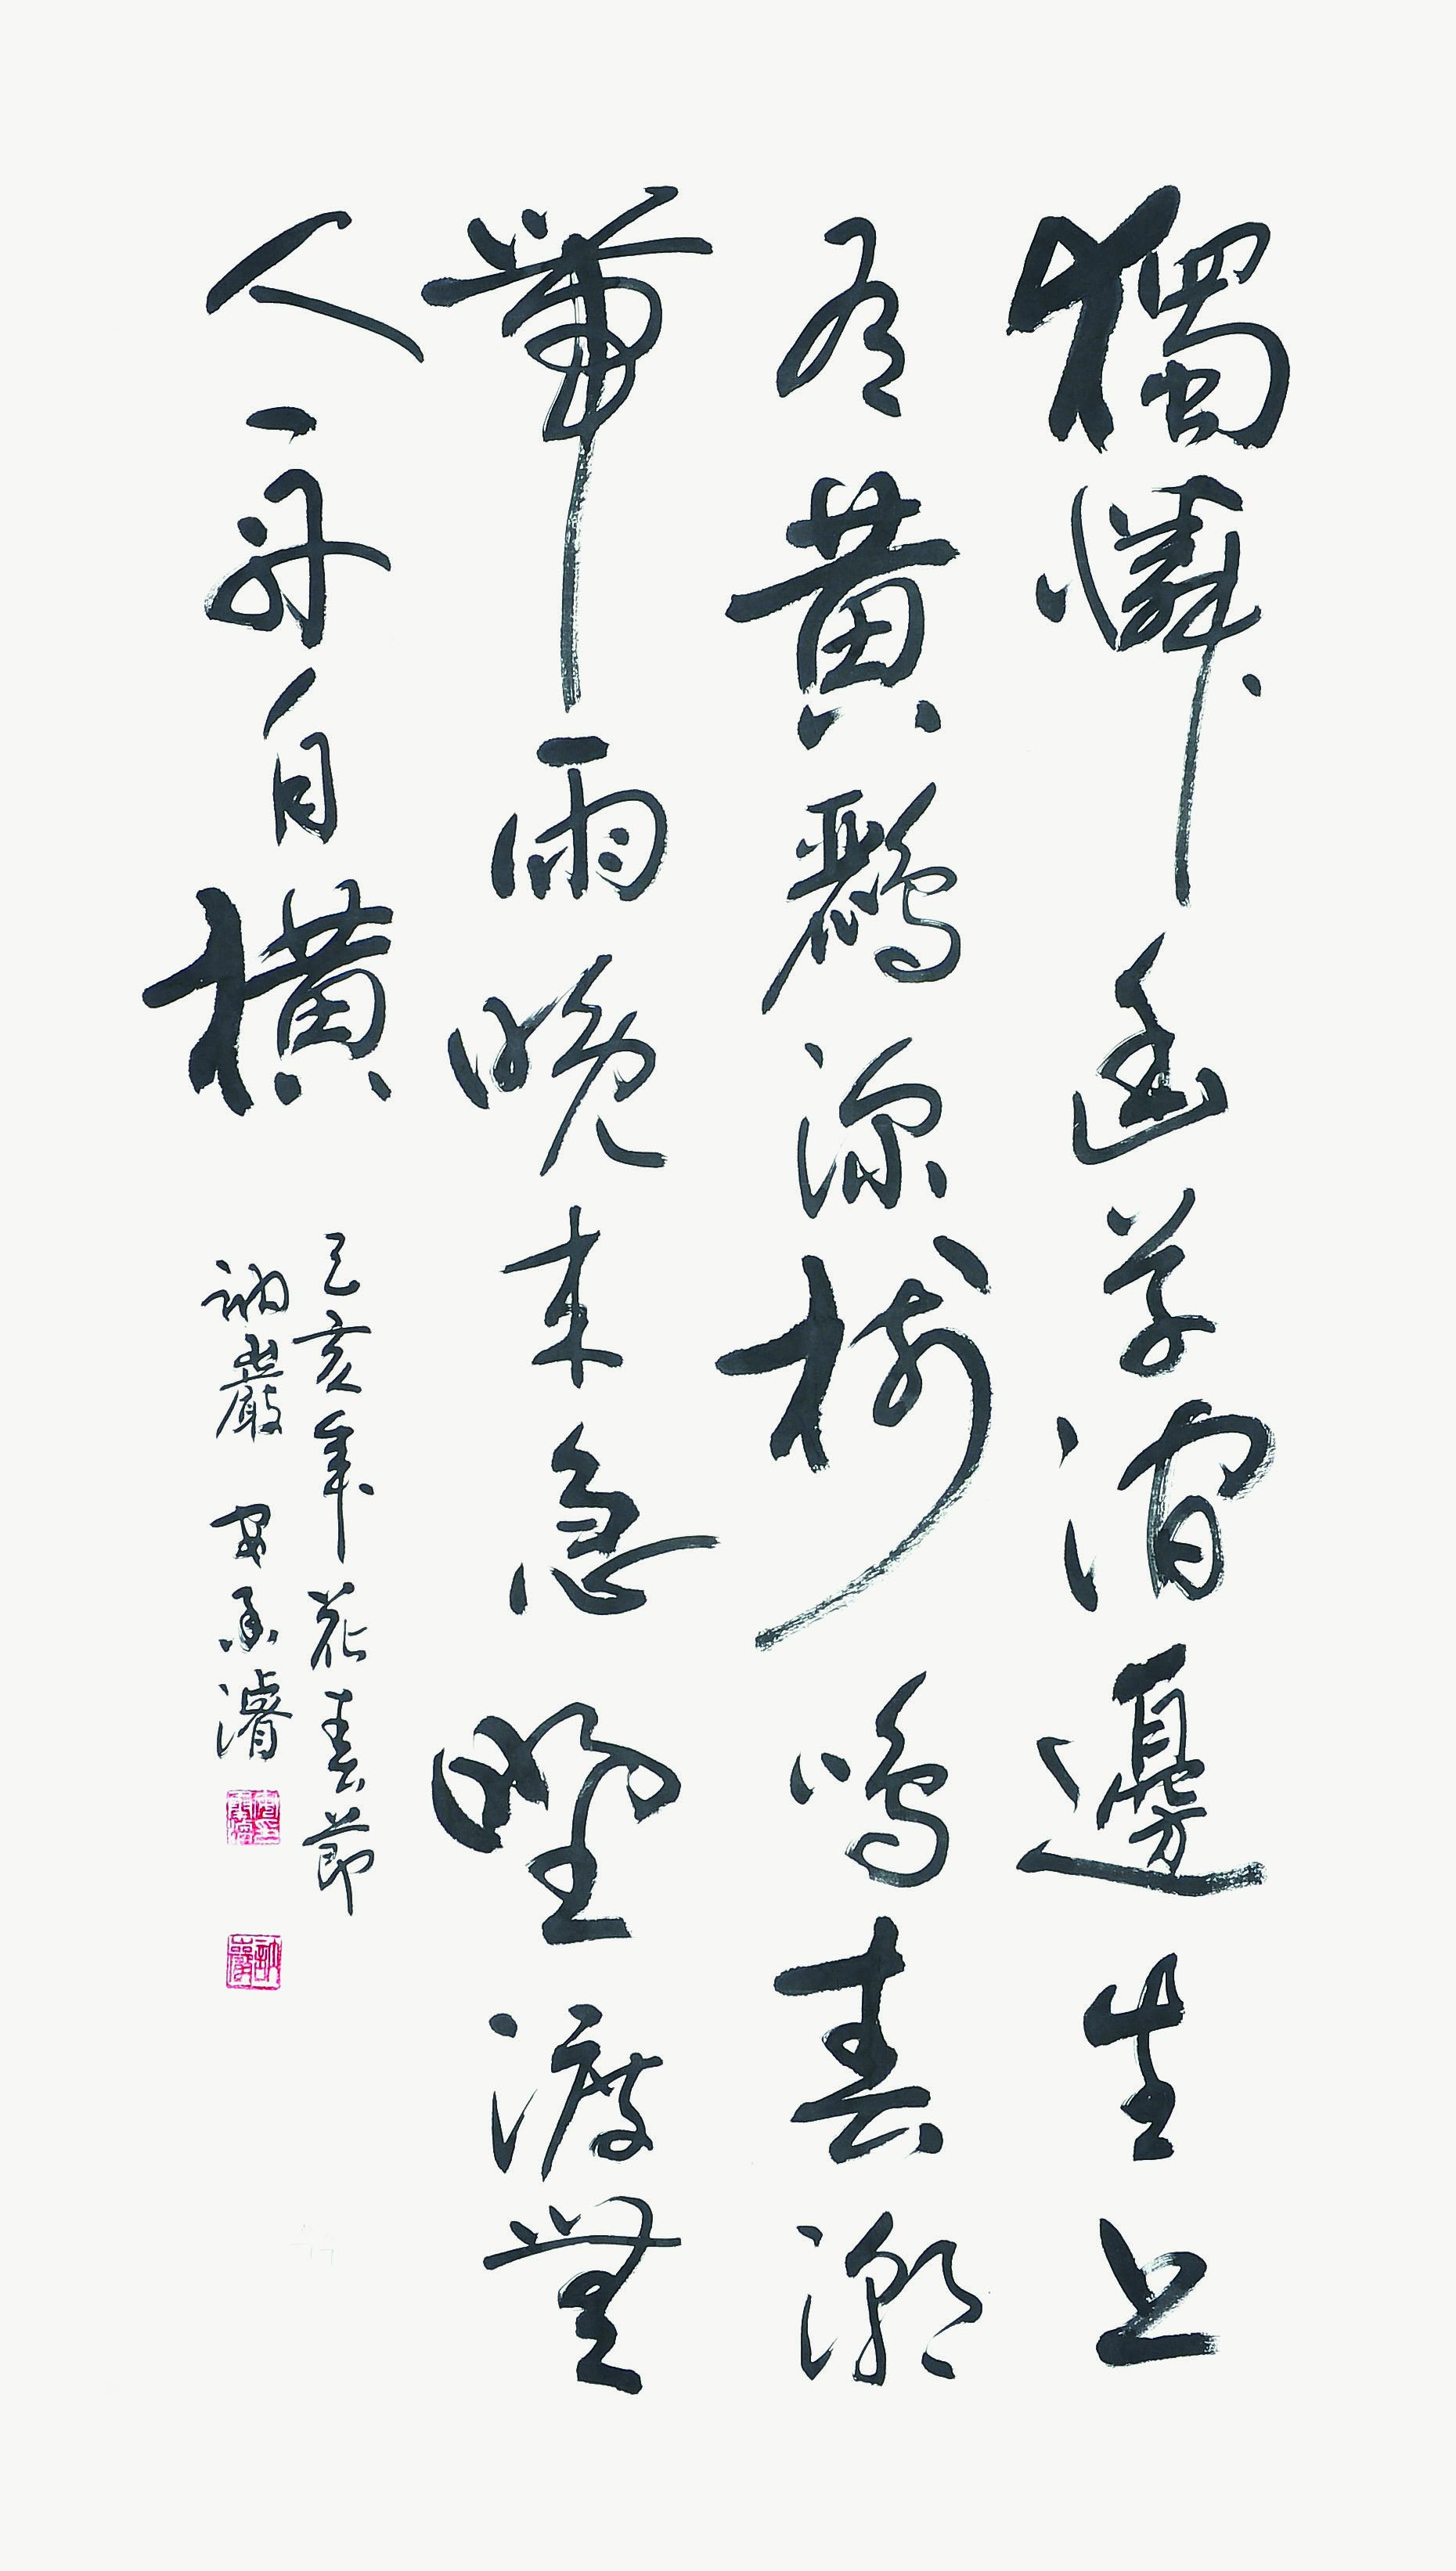 獨憐幽草澗邊生上
有黃鸝深樹鳴春潮
帶雨晚來急野渡無
人舟自橫
己亥年花春節
訥巖 安承濬
訥巖